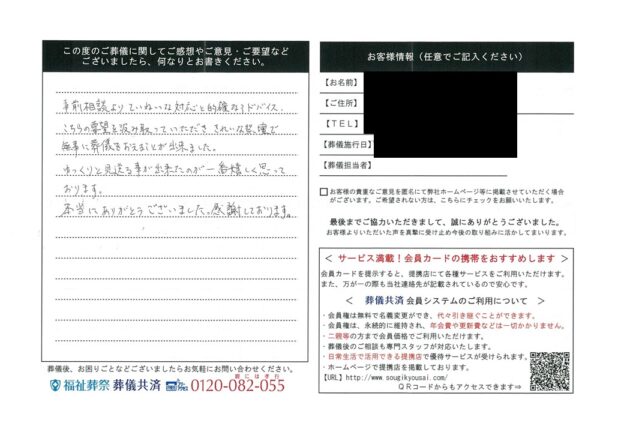 この度のご葬儀に関してご感想やご意見・ご要望など
ございましたら、何なりとお書きください。
事前相談よりていねいな対応と的確なアドバイス、
こちらの要望を汲み取っていただき きれいな祭壇で
無事に葬儀をおえることが出来ました。
ゆっくりと見送る事が出来たのが一番嬉しく思って
おります。
本当にありがとうございました。感謝しております。
葬儀後、お困りごとなどございましたらお気軽にお問い合わせください。
福祉葬祭 葬儀共済 0120-082-055
お客様情報（任意でご記入ください）
【お名前】
【ご住所】
【ＴＥＬ】
【葬儀施行日】
【葬儀担当者】
□ お客様の貴重なご意見を匿名にて弊社ホームページ等に掲載させていただく場合
がございます。ご希望されない方は、こちらにチェックをお願いいたします。
最後までご協力いただきまして、誠にありがとうございました。
お客様よりいただいた声を真摯に受け止め今後の取り組みに活かしてまいります。
＜ サービス満載！会員カードの携帯をおすすめします ＞
会員カードを提示すると、提携店にて各種サービスをご利用いただけます。
また、万が一の際も当社連絡先が記載されているので安心です。
＜ 葬儀共済 会員システムのご利用について ＞
・会員権は無料で名義変更ができ、代々引き継ぐことができます。
・会員権は、永続的に維持され、年会費や更新費などは一切かかりません。
・二親等の方まで会員価格でご利用いただけます。
・葬儀後のご相談も専門スタッフが対応いたします。
・日常生活で活用できる提携店で優待サービスが受けられます。
・ホームページで提携店を掲載しております。
【URL】http://www.sougikyousai.com/
ＱＲコードからもアクセスできます⇒